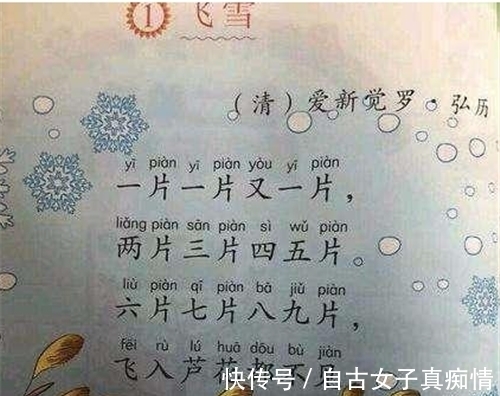 1 飞雪
(清)爱新觉罗·弘历
yī piàn yī piàn yòu yī piàn
一片一片又一片，
liǎng piàn sān piàn sì wǔ piàn
两片三片四五片。
liù piàn qī piàn bā jiǔ piàn
六片七片八九片，
fēi rù lú huā dōu bù jiàn
飞入芦花都不见
快传号 / 自古女子真痴情